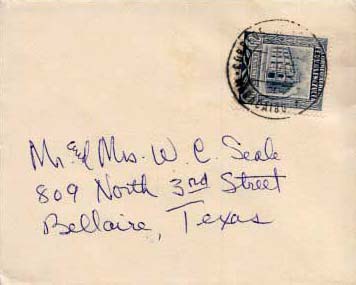 CAIRO
Mr. and Mrs. W. C. Seale
809 North 3rd Street
Bellaire, Texas